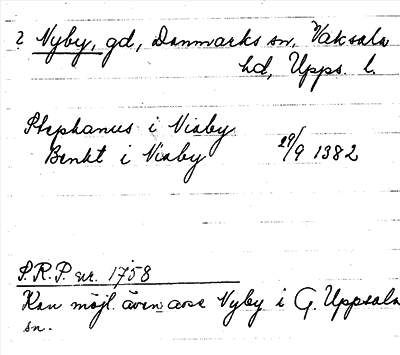 ? Nyby, gd, Danmarks sn, Vaksala
hd, Upps. l.
Stephanus i Niaby
Benkt i Niaby 29/9 1382
S.R.P. nr. 1758
Kan möjl. även avse Nyby i G. Uppsala
sn.